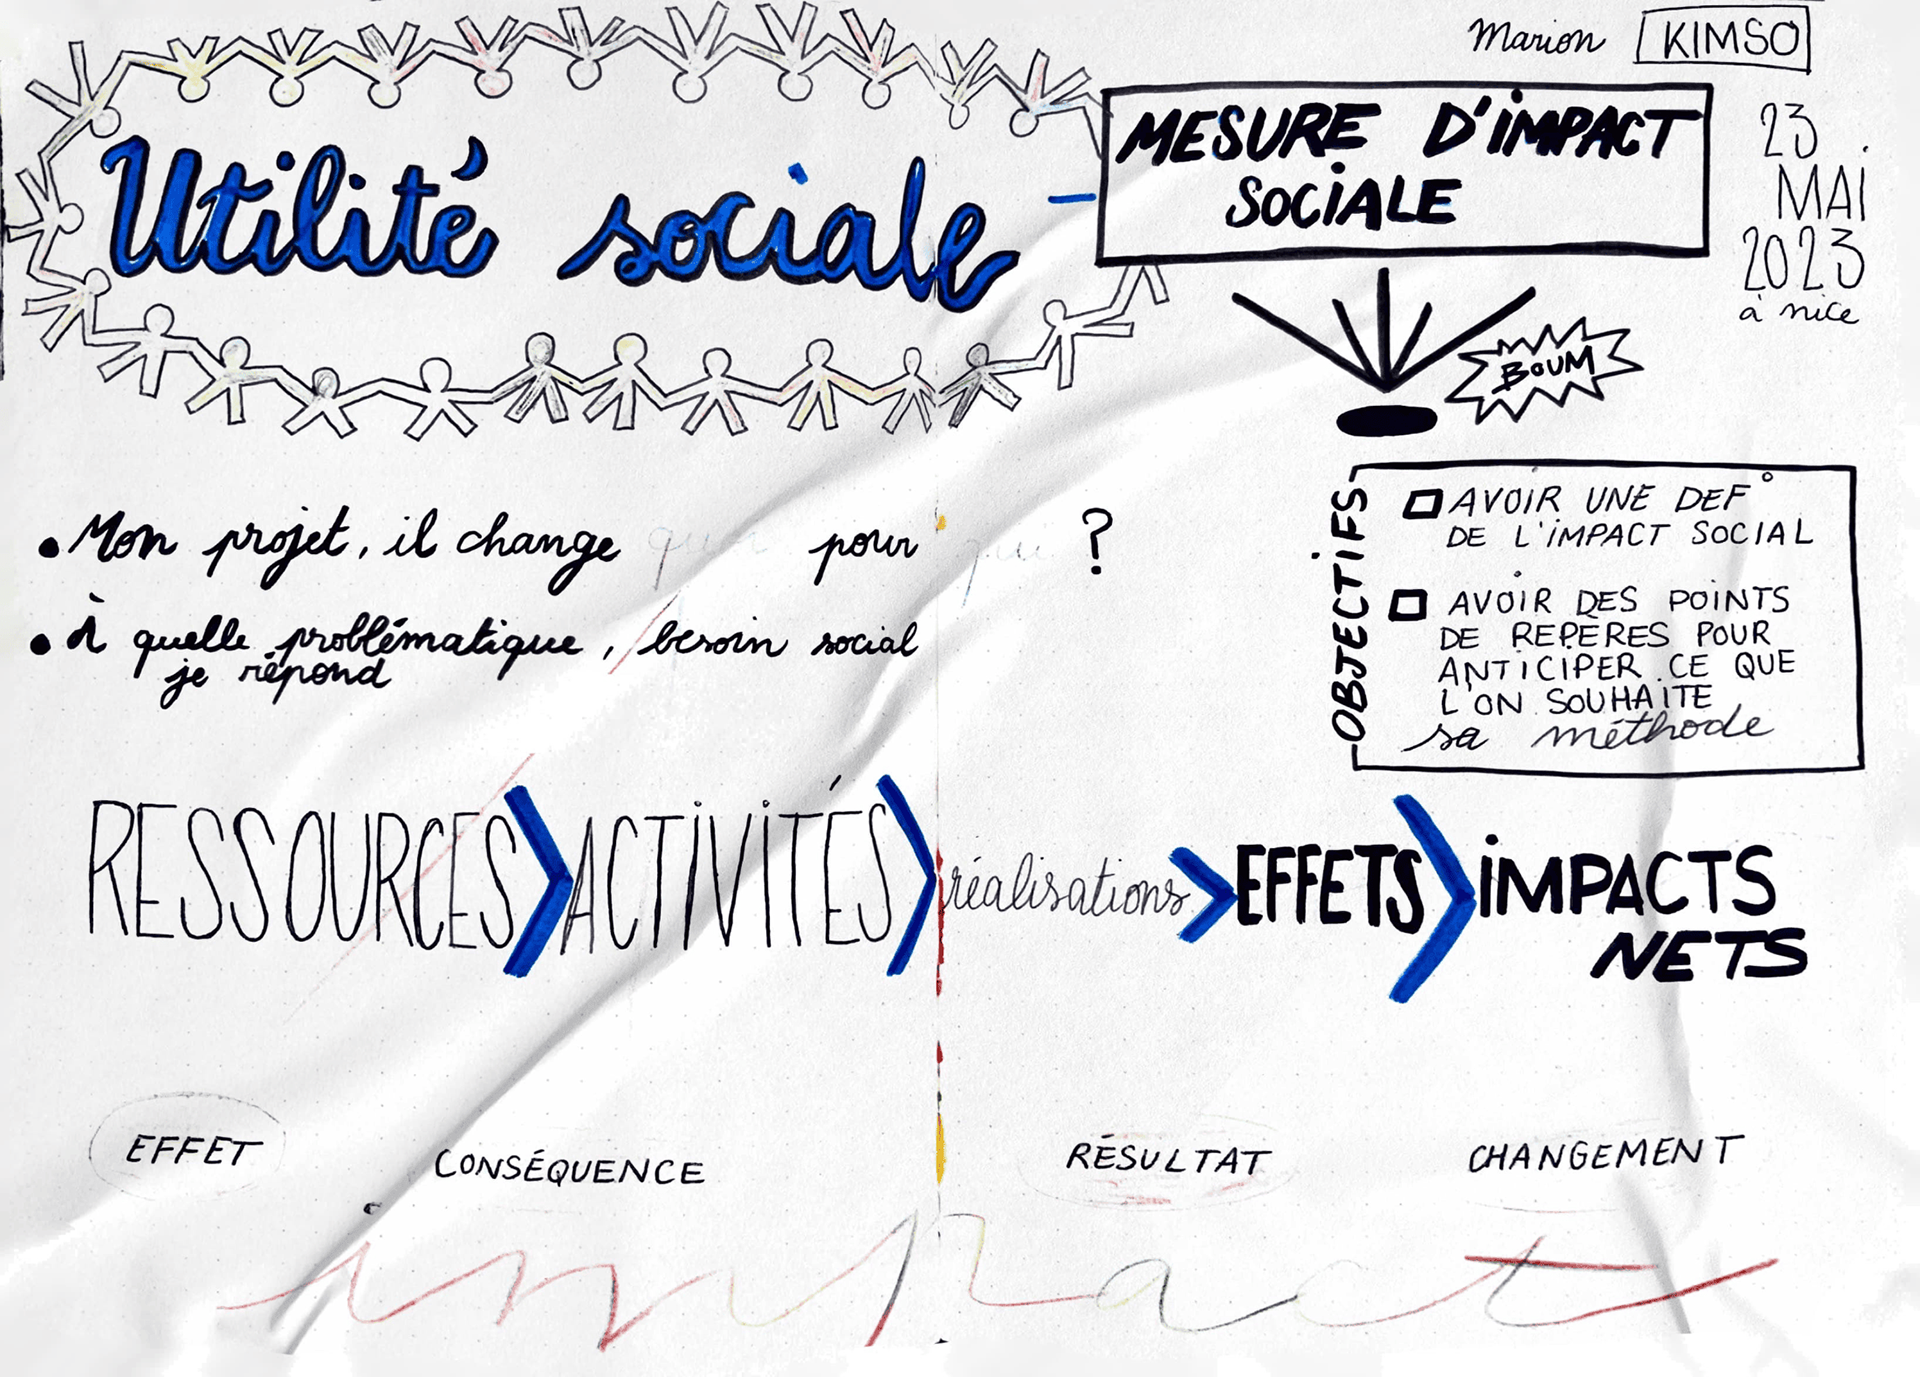 Marion KIMSO
Utilité sociale - MESURE D'IMPACT
SOCIALE
23
MAI
2023
à nice
BOUM
OBJECTIFS
AVOIR UNE DEF°
DE L'IMPACT SOCIAL
AVOIR DES POINTS
DE REPÈRES POUR
ANTICIPER CE QUE
L'ON SOUHAITE
sa méthode
• Mon projet, il change quoi pour qui ?
• À quelle problématique, besoin social
je répond
RESSOURCES > ACTIVITÉS > réalisations > EFFETS > IMPACTS
NETS
EFFET CONSÉQUENCE RÉSULTAT CHANGEMENT
impact